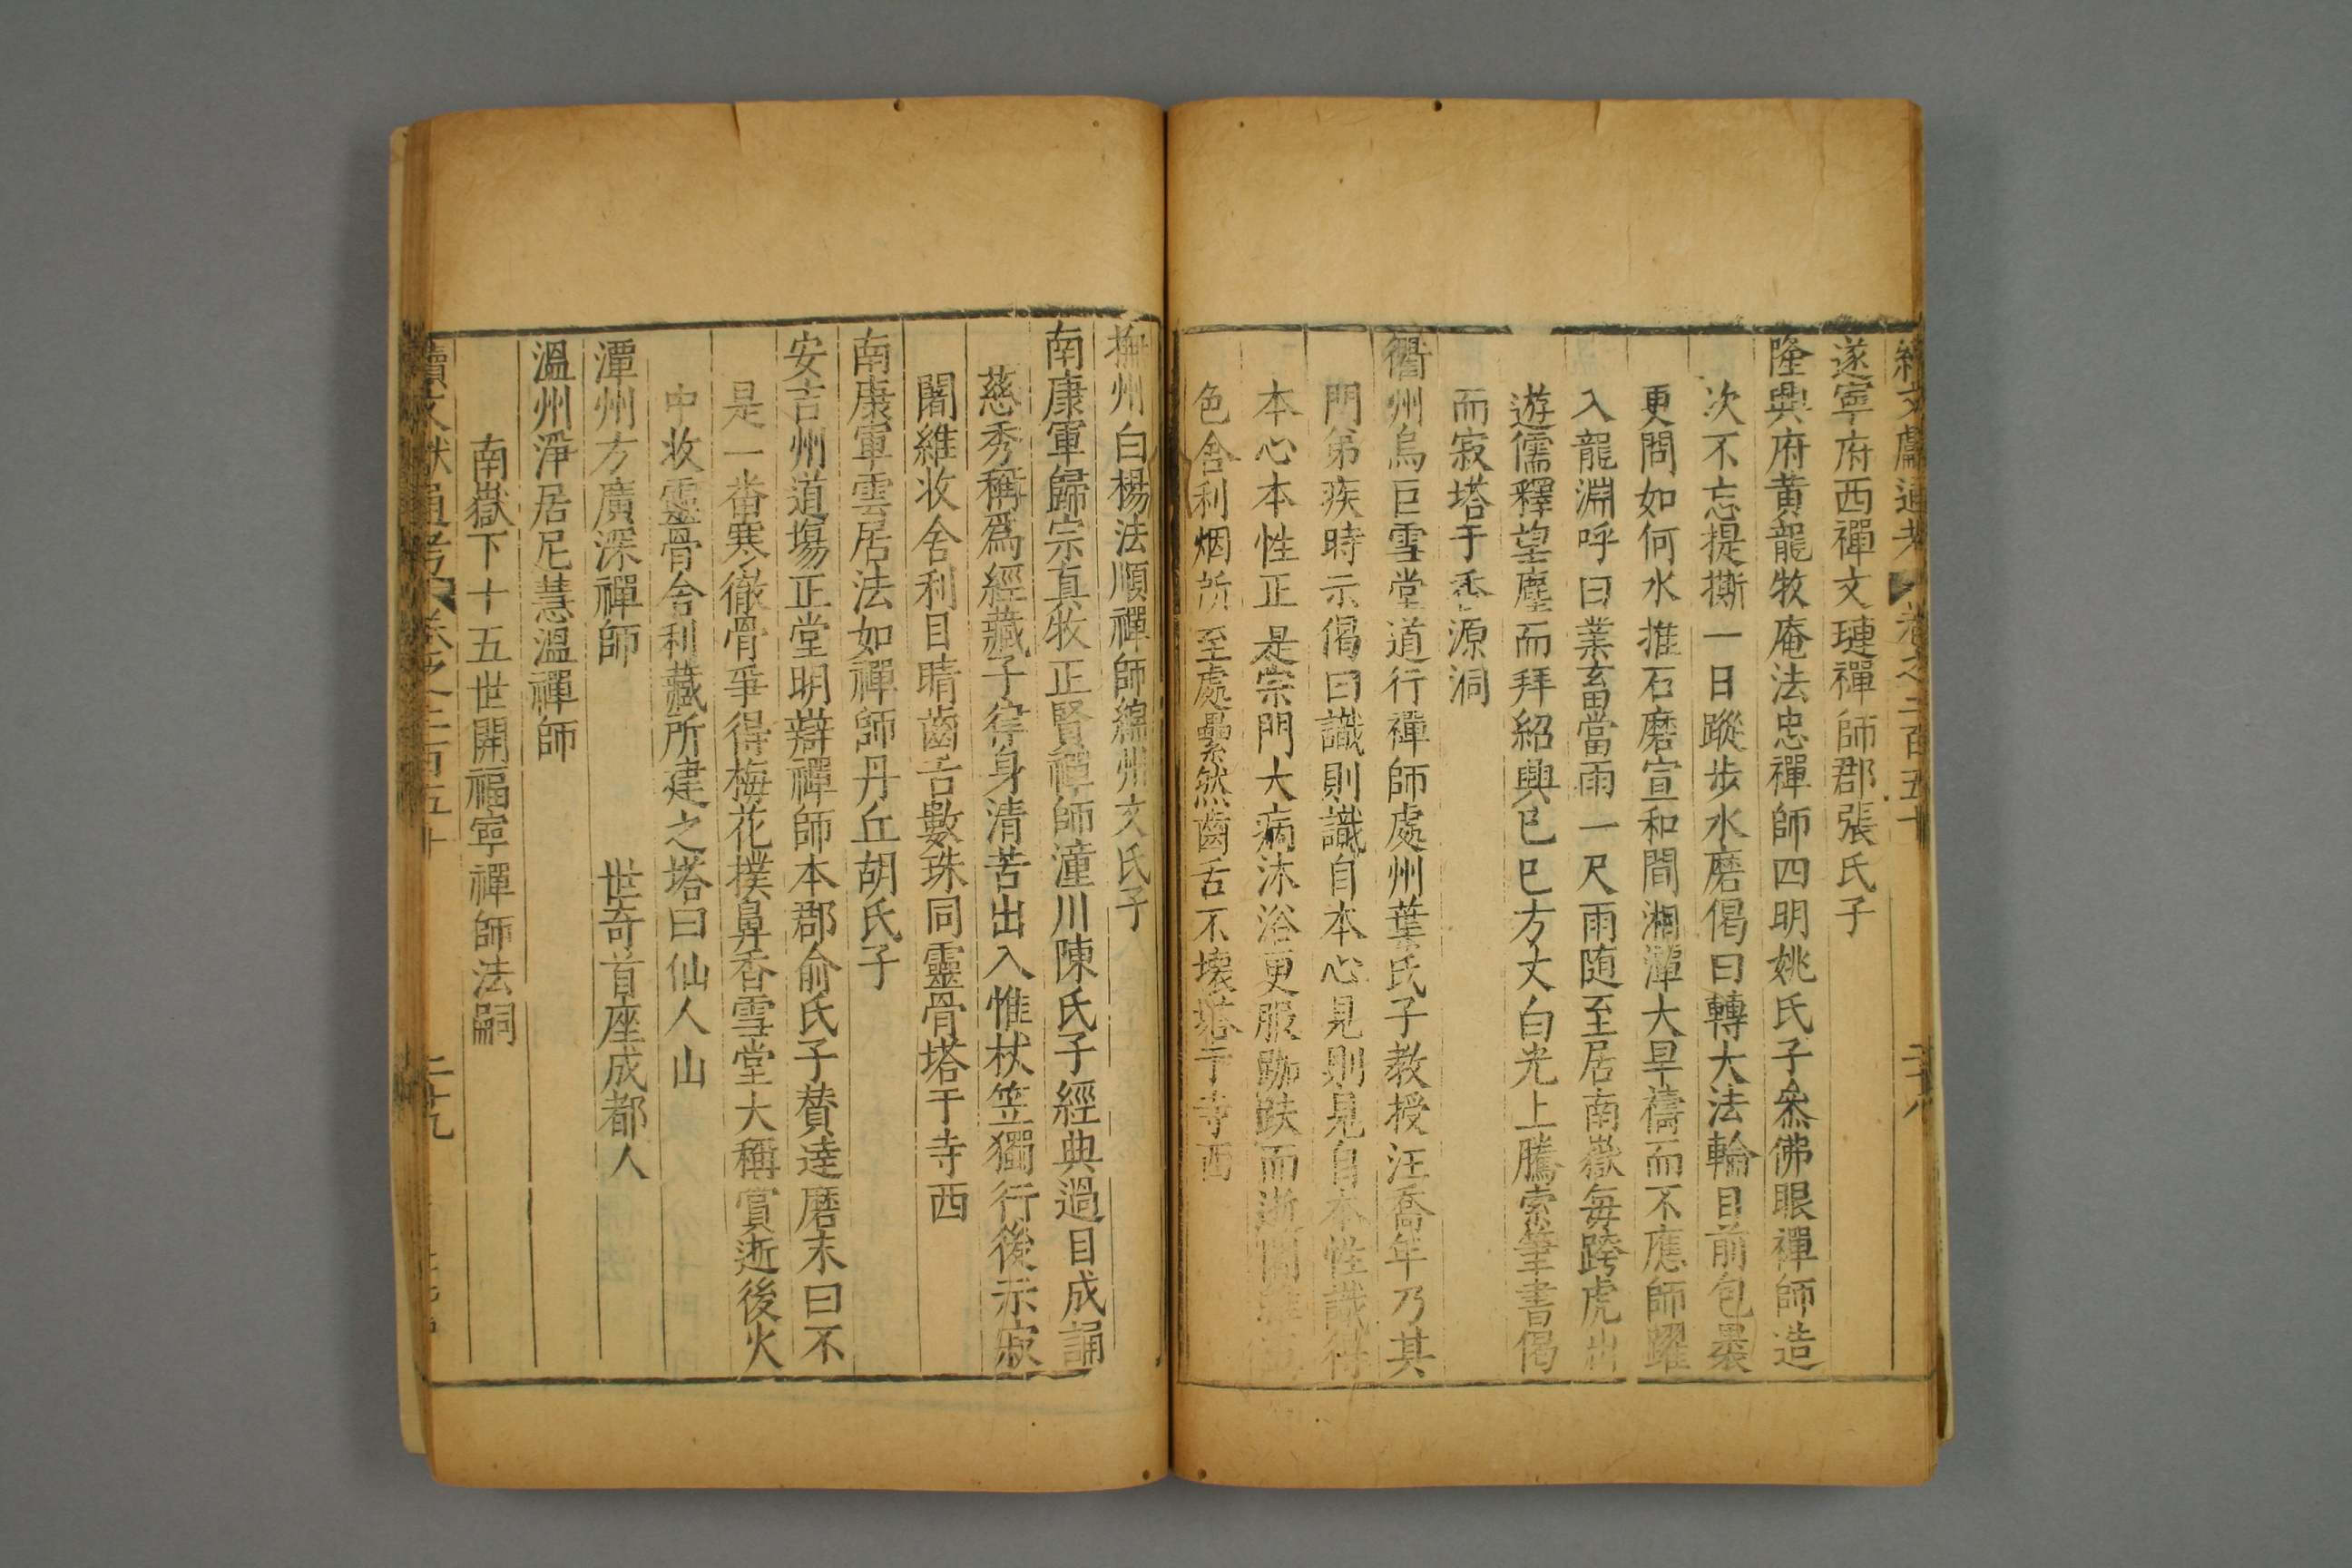 續文獻通考 卷之二百五十 二十八
遂寧府西禪文璉禪師郡張氏子
隆興府黃龍牧庵法忠禪師四明姚氏子叅佛眼禪師造
次不忘提撕一日蹤步水磨偈曰轉大法輪目前包褁
更問如何水推石磨宣和間湘潭大旱禱而不應師躍
入龍淵呼曰業畜當雨一尺雨随至居南嶽每跨虎出
遊儒釋望塵而拜紹興已巳方丈白光上騰索筆書偈
而寂塔于香源洞
衢州烏巨雪堂道行禪師處州葉氏子教授汪喬年乃其
門第疾時示偈曰識則識自本心見則見自本性識得
本心本性正是宗門大病沐浴更服跏趺而逝闍維五
色舍利烟所至處纍然齒舌不壞塔于寺西
撫州白楊法順禪師綿州文氏子
南康軍歸宗真牧正賢禪師潼川陳氏子經典過目成誦
慈秀稱爲經藏子宰身清苦出入惟杖笠獨行後示寂
闍維收舍利目睛齒舌數珠同靈骨塔于寺西
南康軍雲居法如禪師丹丘胡氏子
安吉州道塲正堂明辯禪師本郡俞氏子賛達磨末曰不
是一番寒徹骨爭得梅花撲鼻香雪堂大稱賞逝後火
中收靈骨舍利藏所建之塔曰仙人山
潭州方廣深禪師 世奇首座成都人
溫州淨居尼慧溫禪師
南嶽下十五世開福寧禪師法嗣
續文獻通考 卷之二百五十 二十九